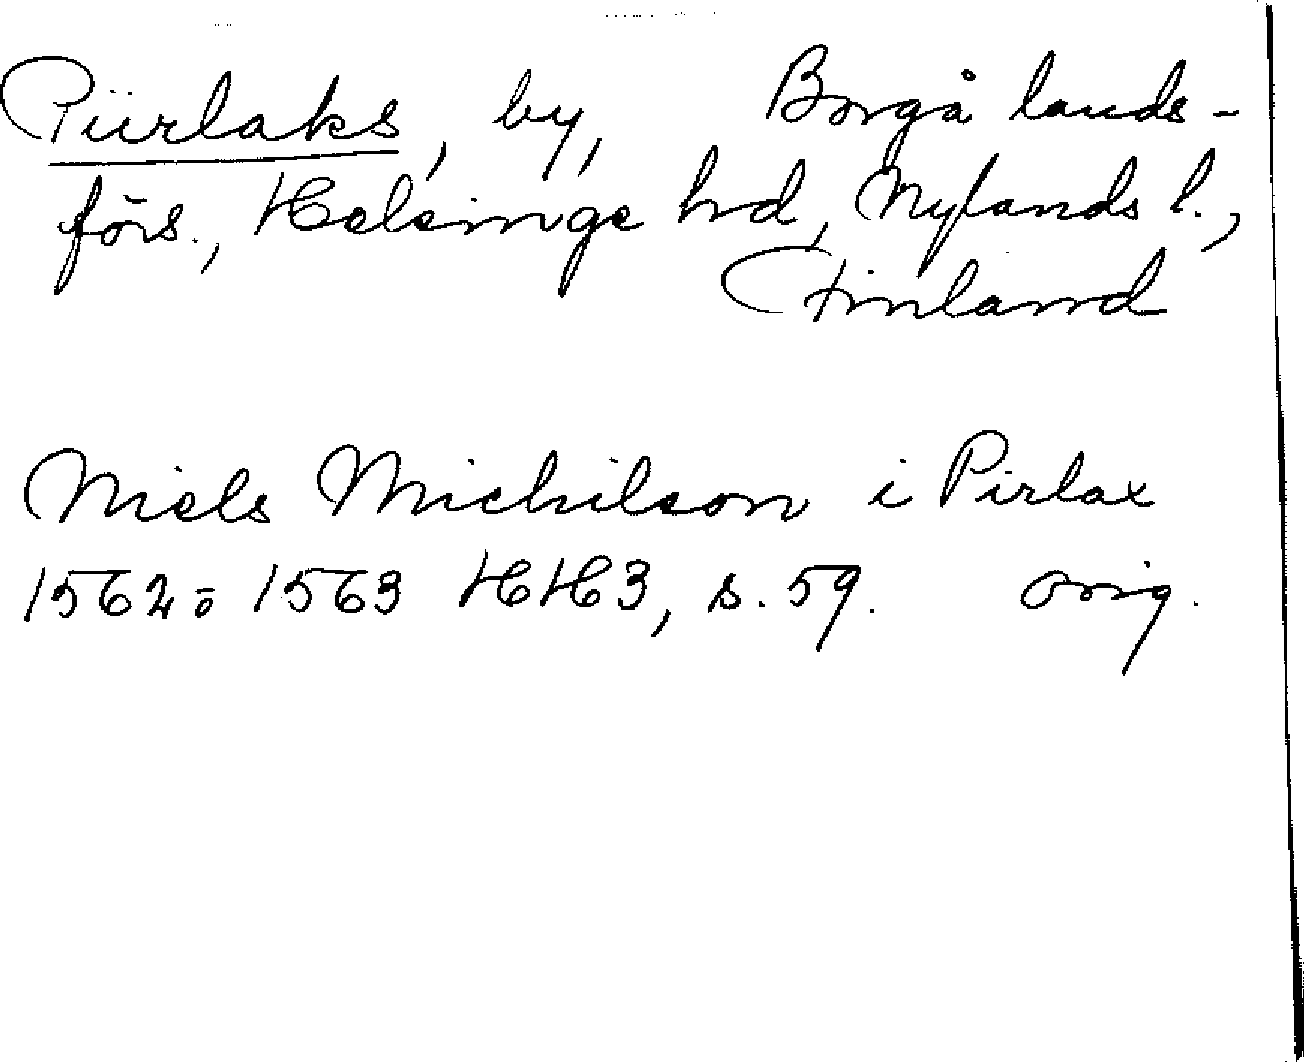 Piirlaks, by, Borgå lands-
förs., Helsinge hd, Nylands l.,
Finland
Niels Michilson i Pirlax
1562-1563 HH3, s. 59. orig.